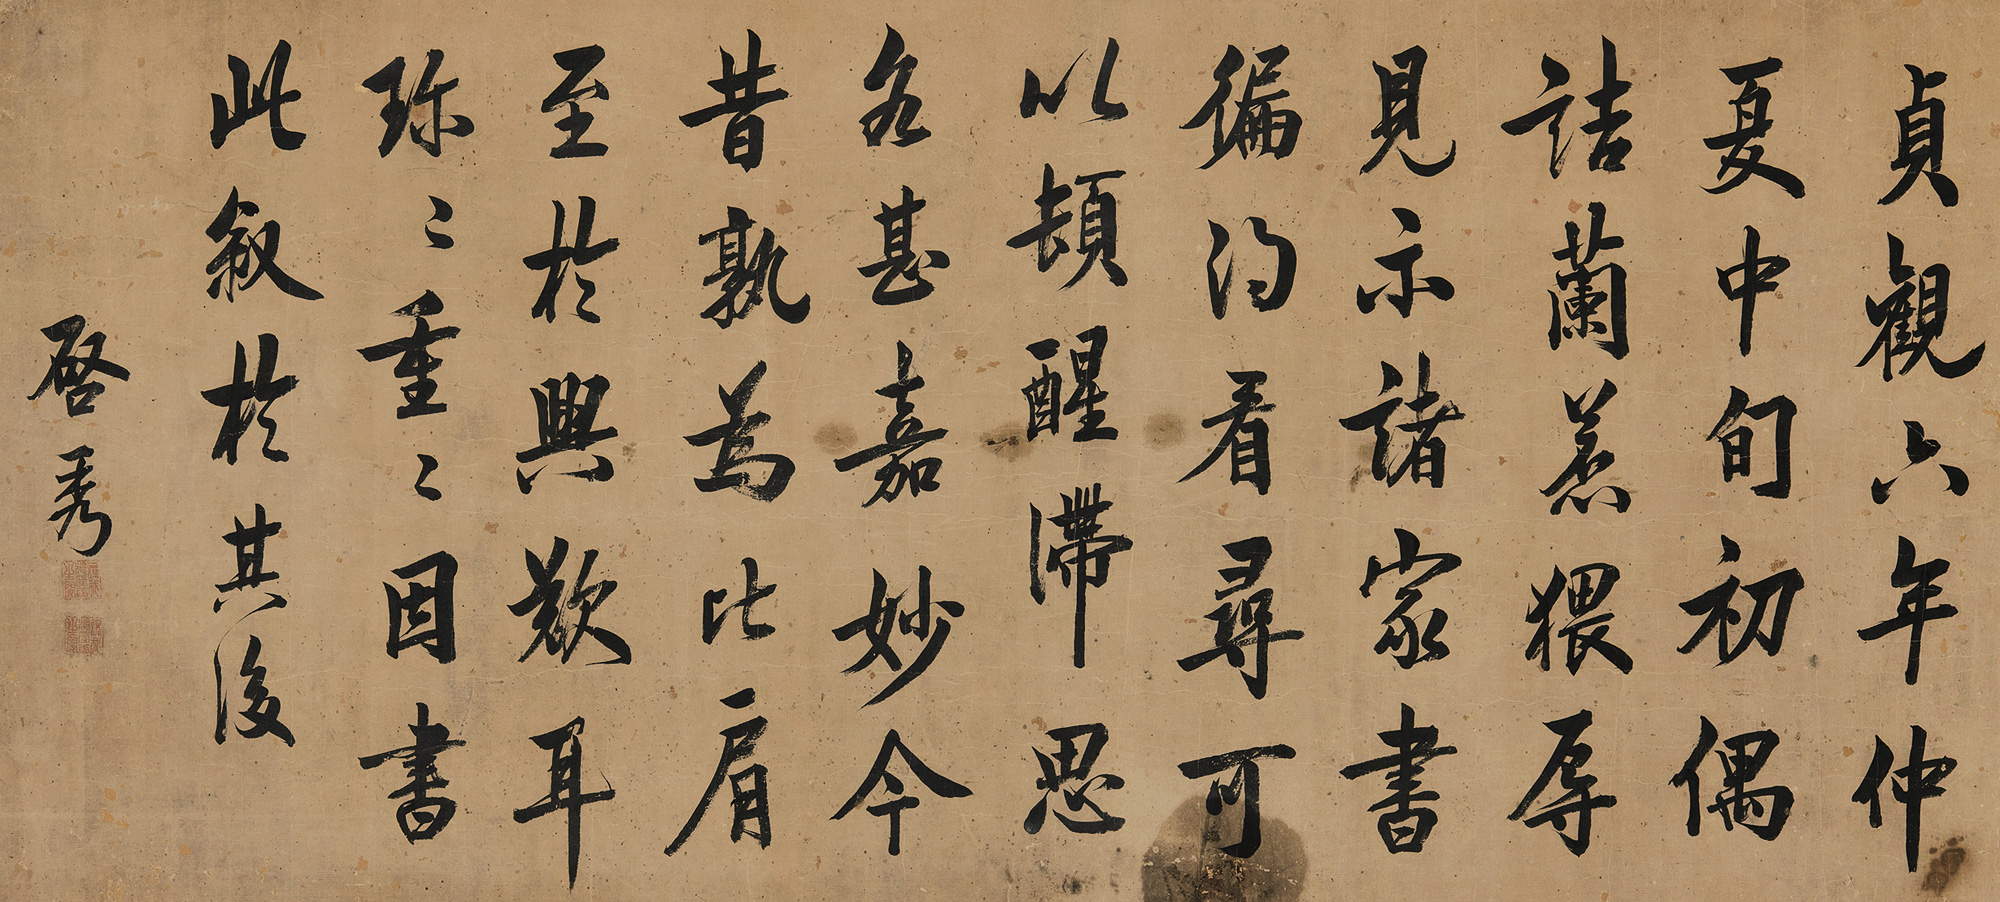 貞觀六年仲
夏中旬初偶
詰蘭若猥辱
見示諸家書
徧得看尋可
以頓醒滯思
名甚嘉妙今
昔孰為比肩
至於興歎耳
珎〻重〻因書
此叙於其後
啓秀